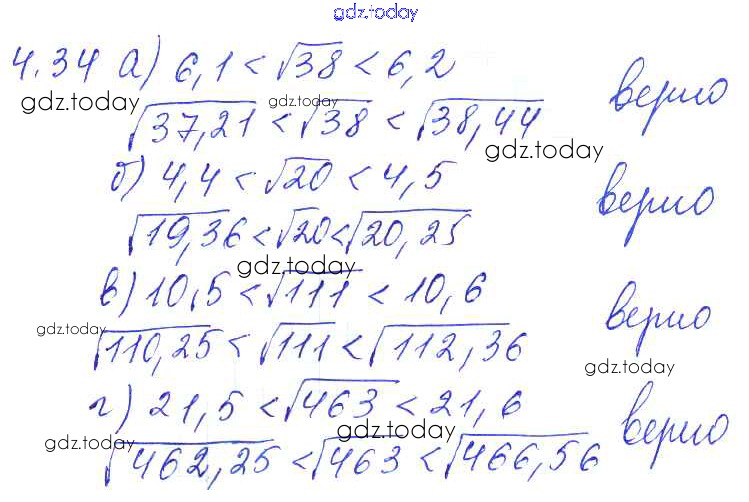 gdz.today
4.34 а) 6,1 < √38 < 6,2
gdz.today gdz.today верно
√37,21 < √38 < √38,44
gdz.today
б) 4,4 < √20 < 4,5
верно
√19,36 < √20 < √20,25
gdz.today
в) 10,5 < √111 < 10,6
gdz.today верно
√110,25 < √111 < √112,36
gdz.today
г) 21,5 < √463 < 21,6
gdz.today gdz.today верно
√462,25 < √463 < √466,56